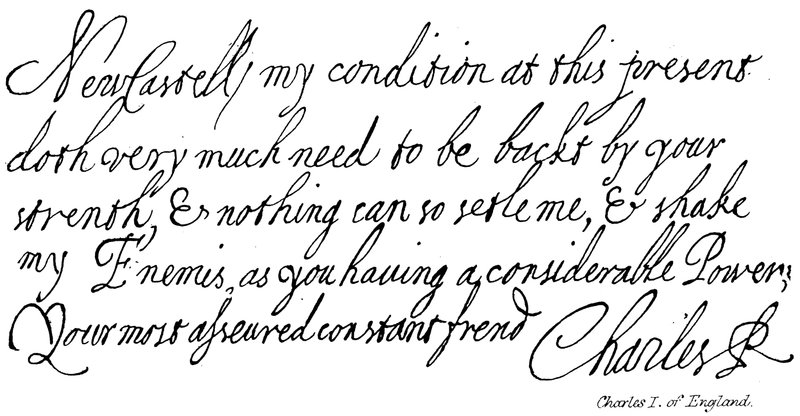 NewCastell, my condition at this present
doth very much need to be backt by your
strenth, & nothing can so setle me, & shake
my Enemis, as you hauing a considerable Power;
Your most asseured constant frend Charles R
Charles I. of England.